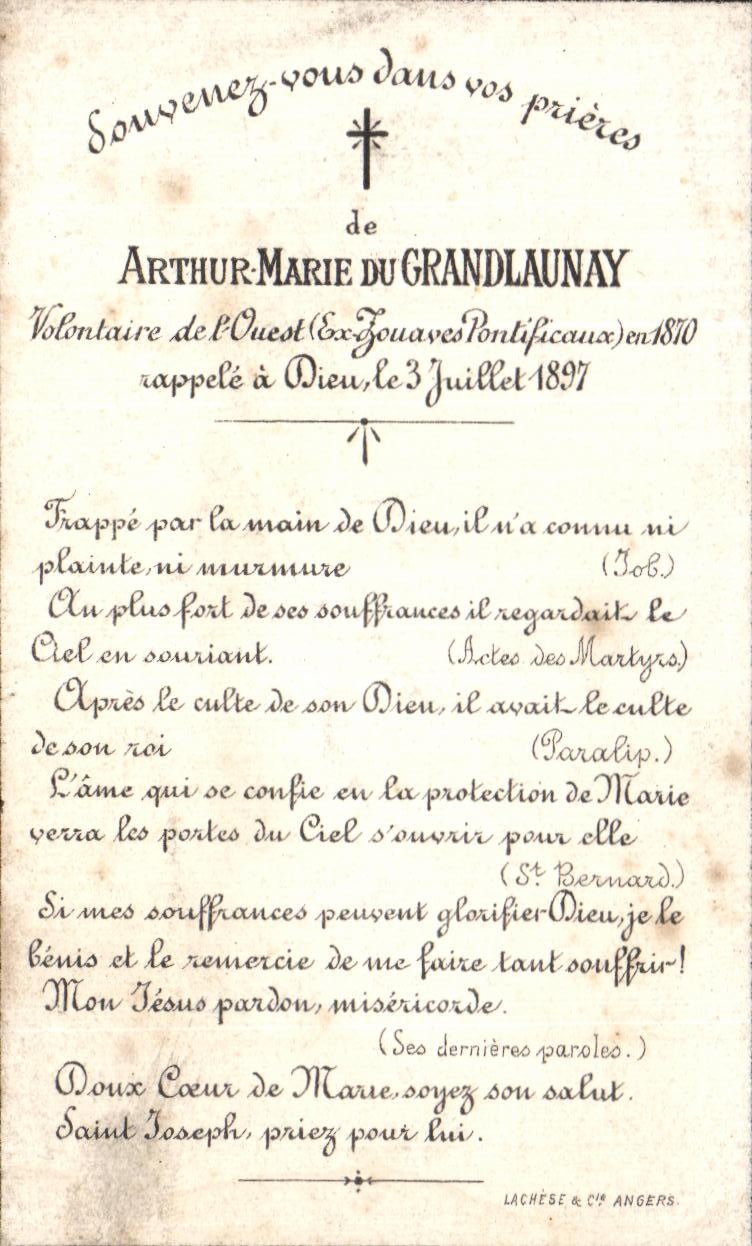 Souvenez-vous dans vos prières
de
ARTHUR-MARIE DU GRANDLAUNAY
Volontaire de l'Ouest (Ex-Zouaves Pontificaux) en 1870
rappelé à Dieu, le 3 Juillet 1897
Frappé par la main de Dieu, il n'a connu ni
plainte, ni murmure (Job.)
Au plus fort de ses souffrances il regardait le
Ciel en souriant. (Actes des Martyrs.)
Après le culte de son Dieu, il avait le culte
de son roi (Paralip.)
L'âme qui se confie en la protection de Marie
verra les portes du Ciel s'ouvrir pour elle
(St. Bernard.)
Si mes souffrances peuvent glorifier Dieu, je le
bénis et le remercie de me faire tant souffrir !
Mon Jésus pardon, miséricorde.
(Ses dernières paroles.)
Doux Cœur de Marie, soyez son salut.
Saint Joseph, priez pour lui.
LACHÈSE & Cie ANGERS.